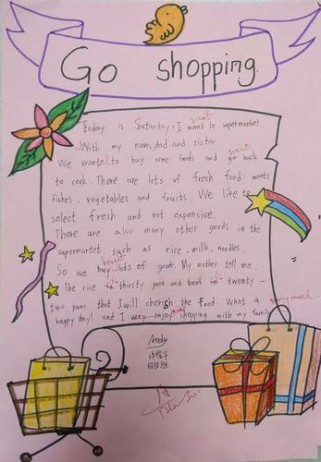 Go shopping
went
Today is Saturday, I want to supermarket
With my mum, dad and sister.
went
We wanted to buy some foods and go back
to cook. There are lots of fresh food: meats
fishes, vegetables and fruits. We like to
select fresh and not expensive.
There are also many other goods in the
supermarket, such as rice, milk, noodles.
bought
So we buy lots of goods. My mother tell me
The rice is thirsty yuan and beef is twenty-
two yuan that I will cherish the food. What a
very much
happy day! and I very enjoy shopping with my family
Andy